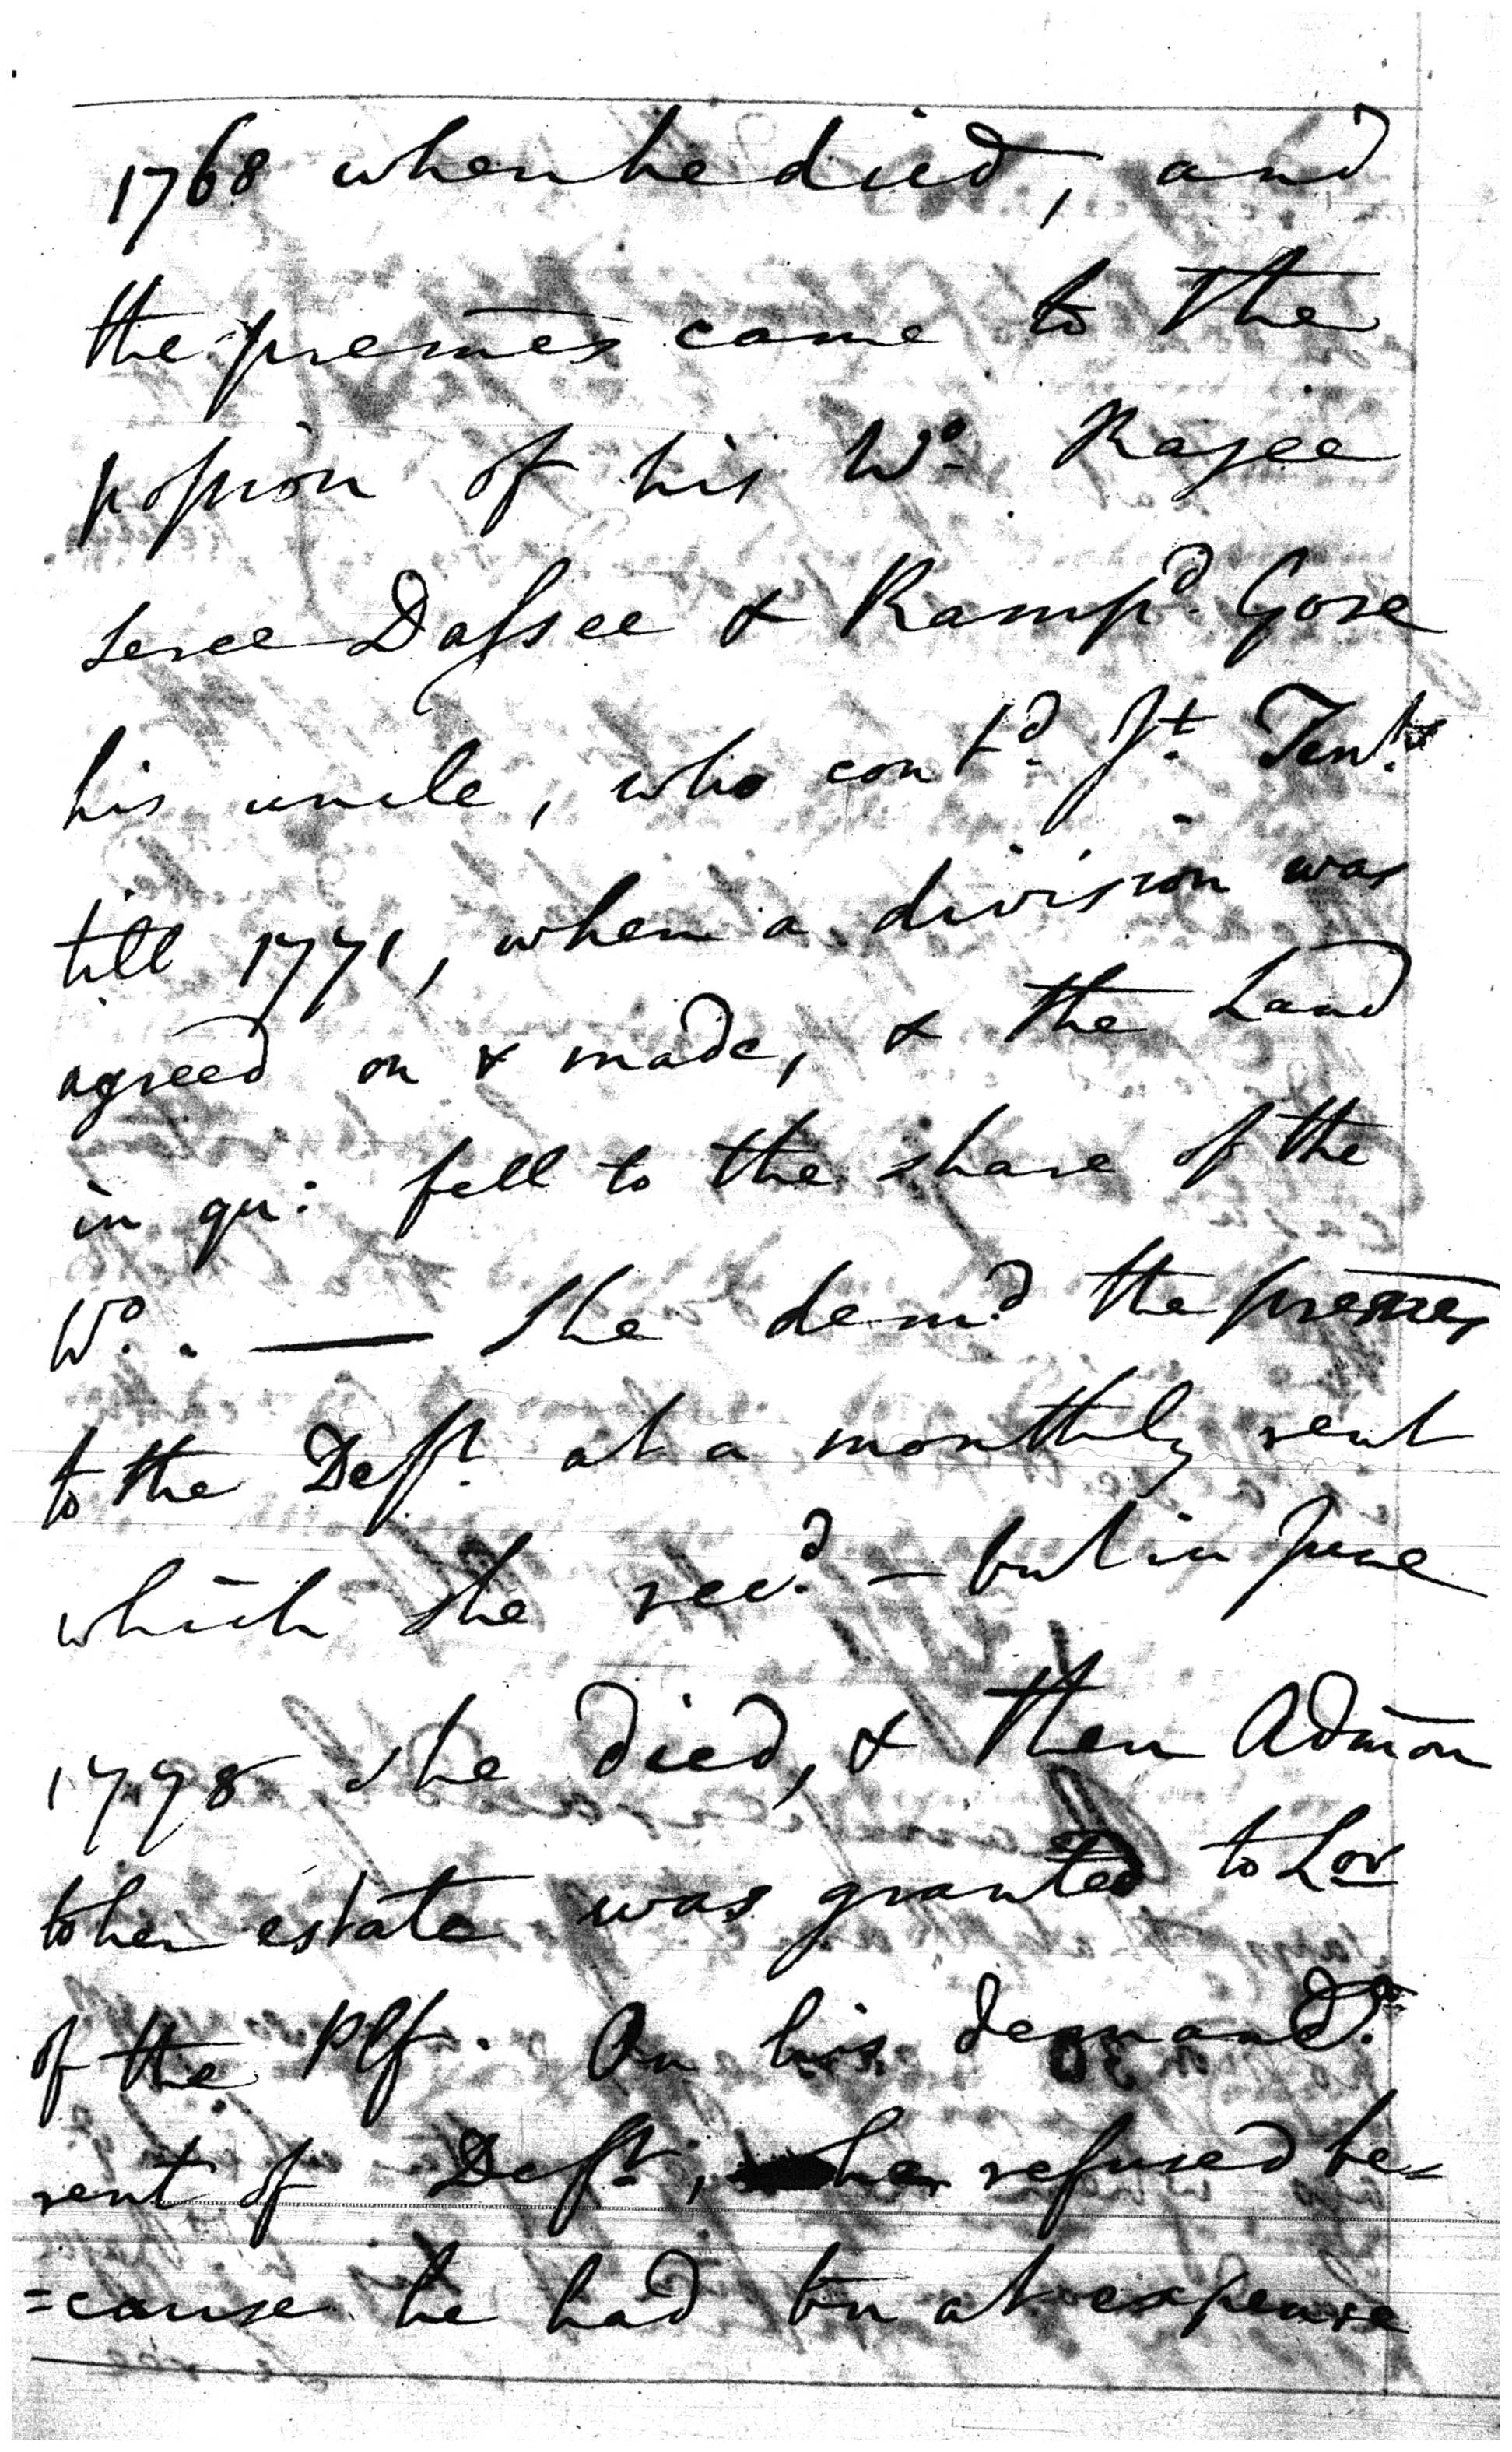 1768 when he died, and
the premēs came to the
possion of his Wo. Rajee
seree Dassee & Rampd. Gose
his uncle, who contd. Jt. Tents.
till 1771, when a division was
agreed on & made, & the Land
in qu: fell to the share of the
Wo. — She demd. the premes
to the Deft. at a monthly rent
which she recd. — but in June
1798 she died, & then Admōn
to her estate was granted to Lor
of the Plf. On his demandg.
rent of Deft, he refused be=
=cause he had bn at expense